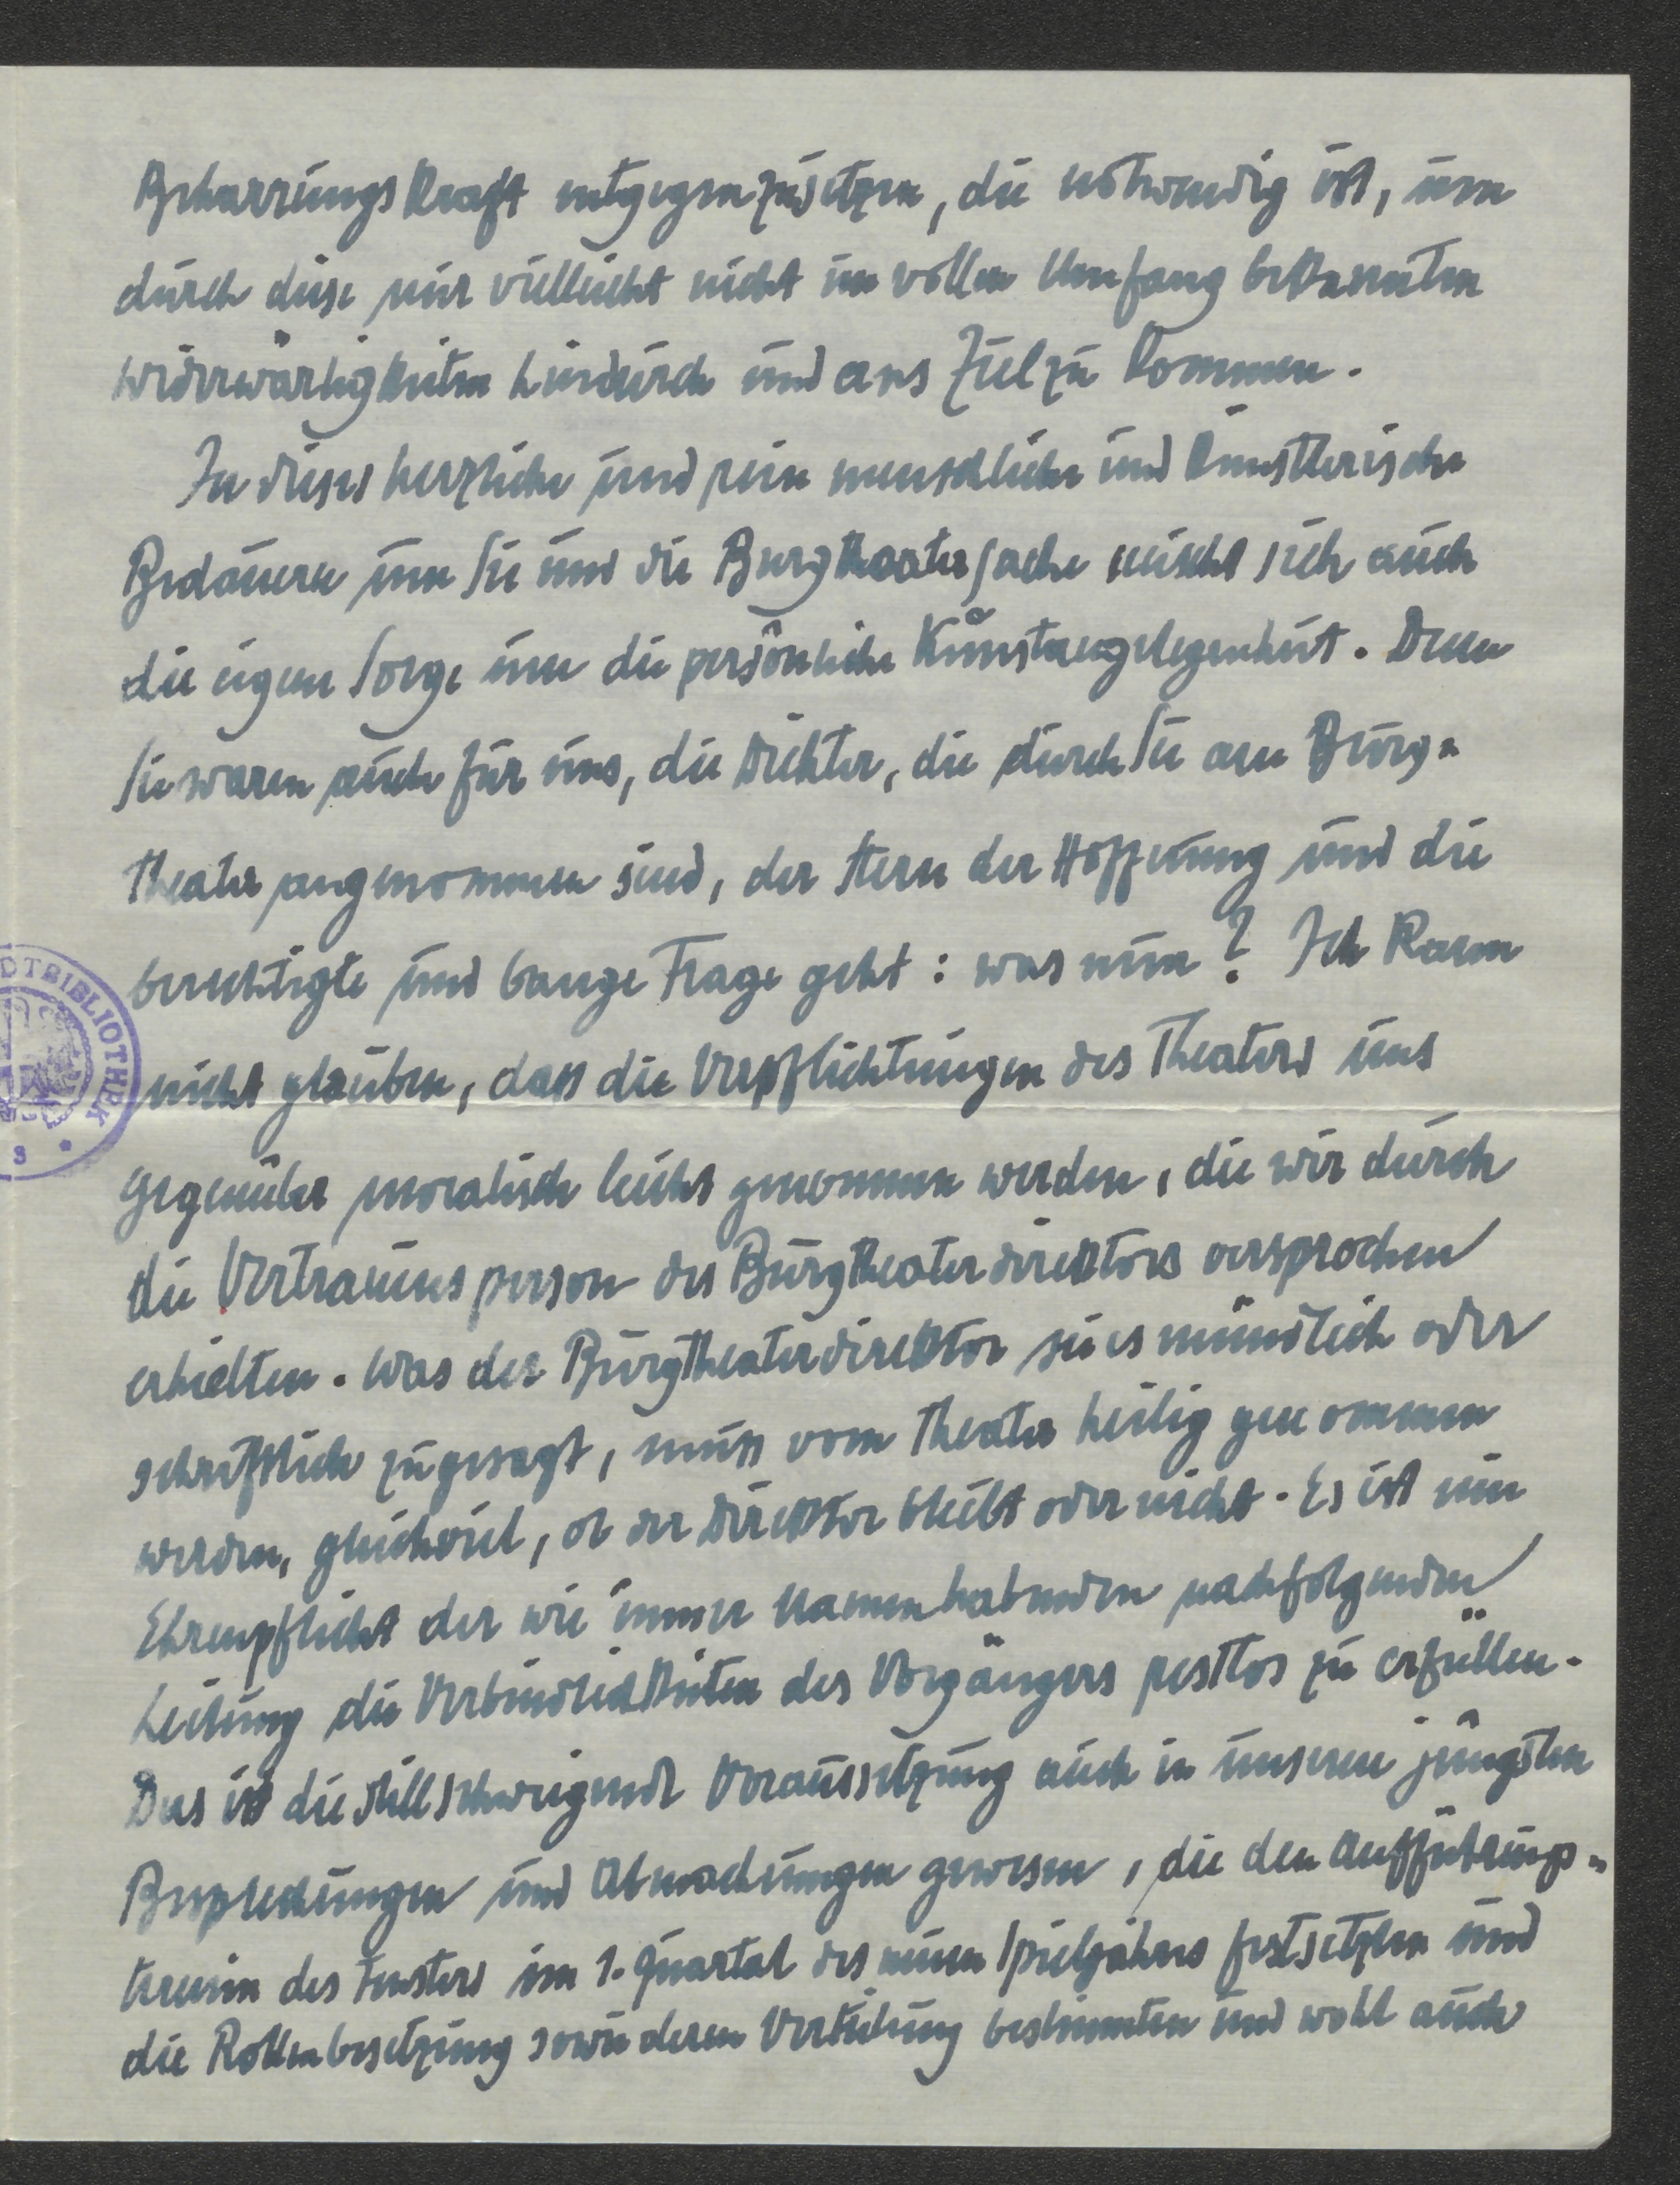 Beharrungskraft entgegenzusetzen, die notwendig ist, um
durch diese mir vielleicht nicht im vollen Umfang bekannten
Widerwärtigkeiten hindurch und ans Ziel zu kommen.
In dieses herzliche und rein menschliche und künstlerische
Bedauern um Sie und die Burgtheatersache mischt sich auch
die eigene Sorge um die persönliche Kunstangelegenheit. Denn
Sie waren auch für uns, die Dichter, die durch Sie am Burg=
theater angenommen sind, der Stern der Hoffnung und die
berechtigte und bange Frage geht: was nun? Ich kann
nicht glauben, dass die Verpflichtungen des Theaters uns
gegenüber moralisch leicht genommen werden, die wir durch
die Vertrauensperson des Burgtheaterdirektors versprochen
erhielten. Was der Burgtheaterdirektor sei es mündlich oder
schriftlich zugesagt, muss vom Theater heilig genommen
werden, gleichviel, ob der Direktor bleibt oder nicht. Es ist nun
Ehrenpflicht der wie immer Namen habenden nachfolgenden
Leitung die Verbindlichkeiten des Vorgängers restlos zu erfüllen.
Das ist die stillschweigende Voraussetzung auch in unseren jüngsten
Besprechungen und Abmachungen gewesen, die den Aufführungs=
termin des Fensters im 1. Quartal des neuen Spieljahres festsetzten und
die Rollenbesetzung sowie deren Verteilung bestimmten und wohl auch
DTBIBLIOTHEK
S